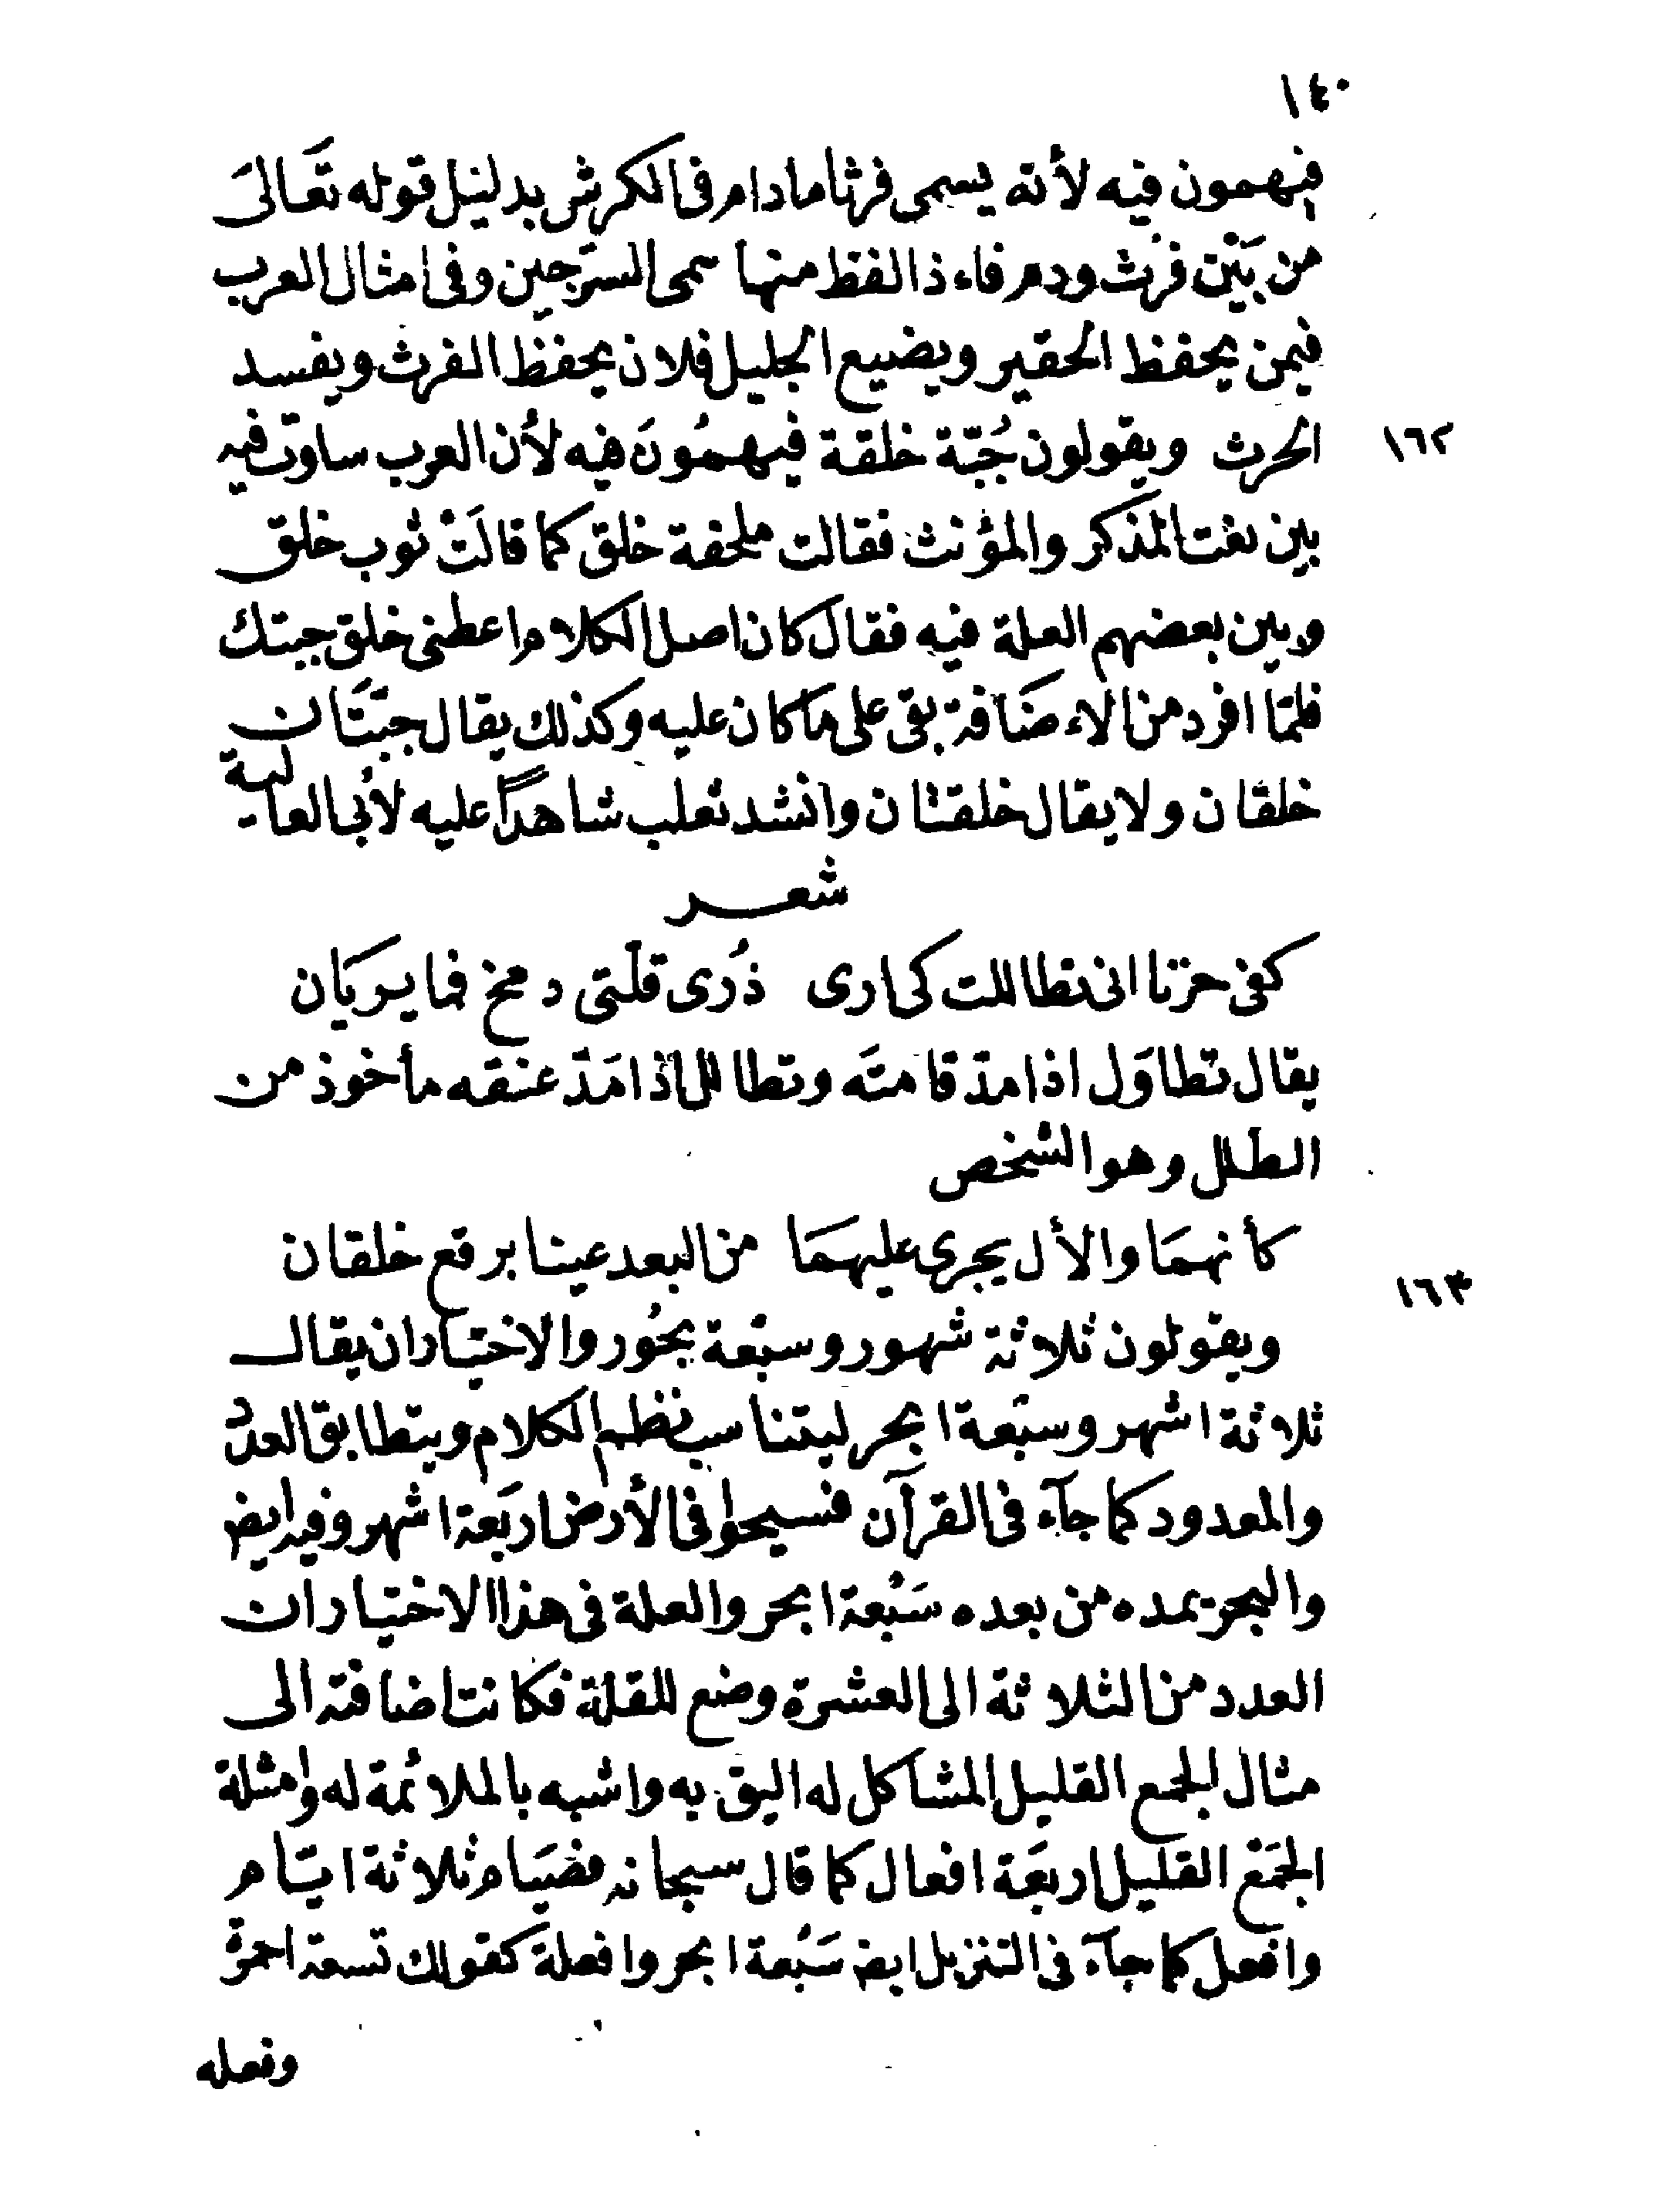 ١٤٠
فيهمون فيه لأنه يسمى فرثا مادام فى الكرش بدليل قوله تَعَالىَ
من بَيْن فرث ودم فاءذا لفظ منها سمى السرجين وفى امثال العرب
فيمن يحفظ الحقير ويضيع الجليل فلان يحفظ الفرث ويفسد
١٦٢ الحرث ويقولون جُبّة خلقة فيهمُونَ فيه لأن العرب ساوت فيه
بين نعت المذكر والمؤنث فقالت ملحفة خلق كما قالَتْ ثوب خلق
وبين بعضهم العلة فيه فقال كان اصل الكلام اعطنى خلق جبتك
فلمّا افرد من الاءضَافة بقى على ما كان عليه وكذلك يقال جبتَّان
خلقان ولا يقال خلقتان وانشد ثعلب شاهداً عليه لأبى العالية
شعر
كفى حزنا انى تطاللت كى ارى ذُرى قلّتى دمخ فما يريَان
يقال تطاوَل اذا مدّ قامتَه وتطالل اذا مَدّ عنقه مأخوذ من
الطلل وهو الشخص
كأنهمَا والأل يجرى عليهمَا من البعد عينا برقع خلقان
١٦٣ ويقولون ثلاثة شهور وسبعة بحُور والاختيار ان يقال
ثلاثة اشهر وسبعة ابحر ليتناسب نظم الكلام ويتطابق العدد
والمعدود كما جآء فى القرآن فسيحوا فى الأرض اربَعة اشهر وفيه ايض
والبحر يمده من بعده سَبْعة ابحر والعلة فى هذا الاختيار ان
العدد من الثلاثة الى العشرة وضع للقلة فكانت اضافته الى
مثال الجمع القليل المشاكل له اليق به واشبه بالملائمة له وامثلة
الجمَع القليل اربعَة افعال كما قال سبحانه فصيَام ثلاثة ايّام
وافعل كما جآء فى التنزيل ايض سَبْعة ابحر وافعلة كقولك تسعة احمرة
وفعله